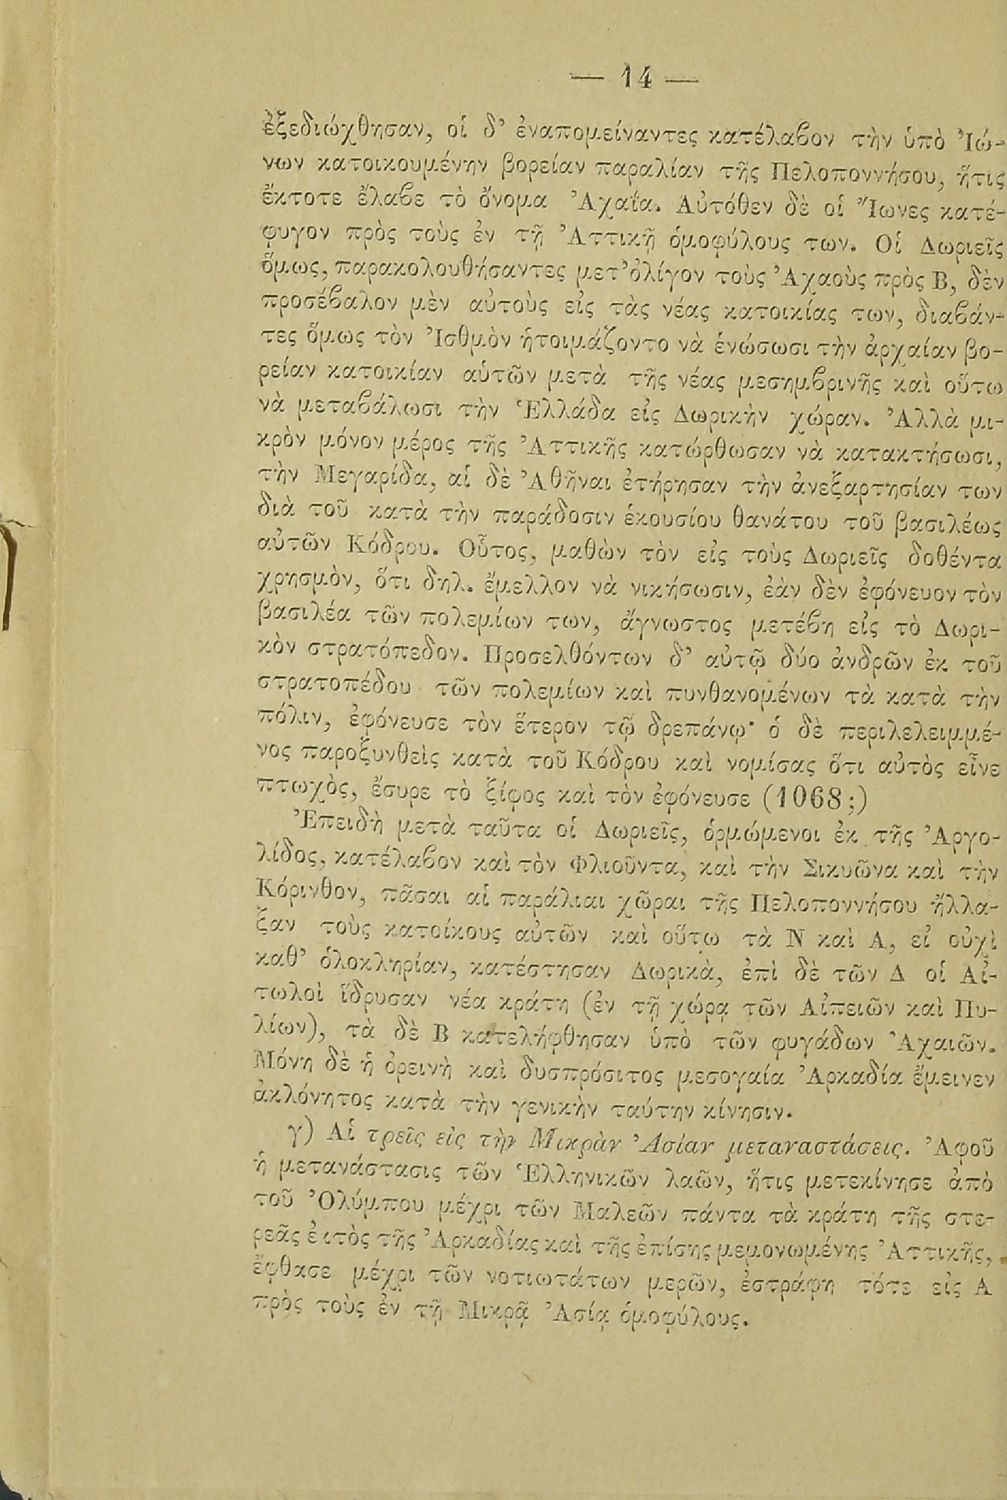 — 14 —
ἐξεδιώχθησαν, οἱ δ' ἐναπομείναντες κατέλαβον τὴν ὑπὸ Ἰώ-
νων κατοικουμένην βορείαν παραλίαν τῆς Πελοποννήσου, ἥτις
ἔκτοτε ἔλαβε τὸ ὄνομα Ἀχαΐα. Αὐτόθεν δὲ οἱ Ἴωνες κατέ-
φυγον πρὸς τοὺς ἐν τῇ Ἀττικῇ ὁμοφύλους των. Οἱ Δωριεῖς
ὅμως, παρακολουθήσαντες μετ' ὀλίγον τοὺς Ἀχαοὺς πρὸς Β, δὲν
προσέβαλον μὲν αὐτοὺς εἰς τὰς νέας κατοικίας των, διαβάν-
τες ὅμως τὸν Ἰσθμὸν ἡτοιμάζοντο νὰ ἑνώσωσι τὴν ἀρχαίαν βο-
ρείαν κατοικίαν αὑτῶν μετὰ τῆς νέας μεσημβρινῆς καὶ οὕτω
νὰ μεταβάλωσι τὴν Ἑλλάδα εἰς Δωρικὴν χώραν. Ἀλλὰ μι-
κρὸν μόνον μέρος τῆς Ἀττικῆς κατώρθωσαν νὰ κατακτήσωσι,
τὴν Μεγαρίδα, αἱ δὲ Ἀθῆναι ἐτήρησαν τὴν ἀνεξαρτησίαν των
διὰ τοῦ κατὰ τὴν παράδοσιν ἑκουσίου θανάτου τοῦ βασιλέως
αὐτῶν Κόδρου. Οὗτος, μαθὼν τὸν εἰς τοὺς Δωριεῖς δοθέντα
χρησμὸν, ὅτι δηλ. ἔμελλον νὰ νικήσωσιν, ἐὰν δὲν ἐφόνευον τὸν
βασιλέα τῶν πολεμίων των, ἄγνωστος μετέβη εἰς τὸ Δωρι-
κὸν στρατόπεδον. Προσελθόντων δ' αὐτῷ δύο ἀνδρῶν ἐκ τοῦ
στρατοπέδου τῶν πολεμίων καὶ πυνθανομένων τὰ κατὰ τὴν
πόλιν, ἐφόνευσε τὸν ἕτερον τῷ δρεπάνῳ· ὁ δὲ περιλελειμμέ-
νος παροξυνθεὶς κατὰ τοῦ Κόδρου καὶ νομίσας ὅτι αὐτὸς εἶνε
πτωχὸς, ἔσυρε τὸ ξίφος καὶ τὸν ἐφόνευσε (1068;)
Ἐπειδὴ μετὰ ταῦτα οἱ Δωριεῖς, ὁρμώμενοι ἐκ τῆς Ἀργο-
λίδος, κατέλαβον καὶ τὸν Φλιοῦντα, καὶ τὴν Σικυῶνα καὶ τὴν
Κόρινθον, πᾶσαι αἱ παράλιαι χῶραι τῆς Πελοποννήσου ἤλλα-
ξαν τοὺς κατοίκους αὐτῶν καὶ οὕτω τὰ Ν καὶ Α, εἰ οὐχὶ
καθ' ὁλοκληρίαν, κατέστησαν Δωρικὰ, ἐπὶ δὲ τῶν Δ οἱ Αἰ-
τωλοὶ ἵδρυσαν νέα κράτη (ἐν τῇ χώρᾳ τῶν Αἰπειῶν καὶ Πυ-
λίων), τὰ δὲ Β κατελήφθησαν ὑπὸ τῶν φυγάδων Ἀχαιῶν.
Μόνη δὲ ἡ ὀρεινὴ καὶ δυσπρόσιτος μεσογαία Ἀρκαδία ἔμεινεν
ἀκλόνητος κατὰ τὴν γενικὴν ταύτην κίνησιν.
γ) Αἱ τρεῖς εἰς τὴν Μικρὰν Ἀσίαν μεταναστάσεις. Ἀφοῦ
ἡ μετανάστασις τῶν Ἑλληνικῶν λαῶν, ἥτις μετεκίνησε ἀπὸ
τοῦ Ὀλύμπου μέχρι τῶν Μαλεῶν πάντα τὰ κράτη τῆς στε-
ρεᾶς ἐκτὸς τῆς Ἀρκαδίας καὶ τῆς ἐπίσης μεμονωμένης Ἀττικῆς,
ἔφθασε μέχρι τῶν νοτιωτάτων μερῶν, ἐστράφη τότε εἰς Α
πρὸς τοὺς ἐν τῇ Μικρᾷ Ἀσίᾳ ὁμοφύλους.